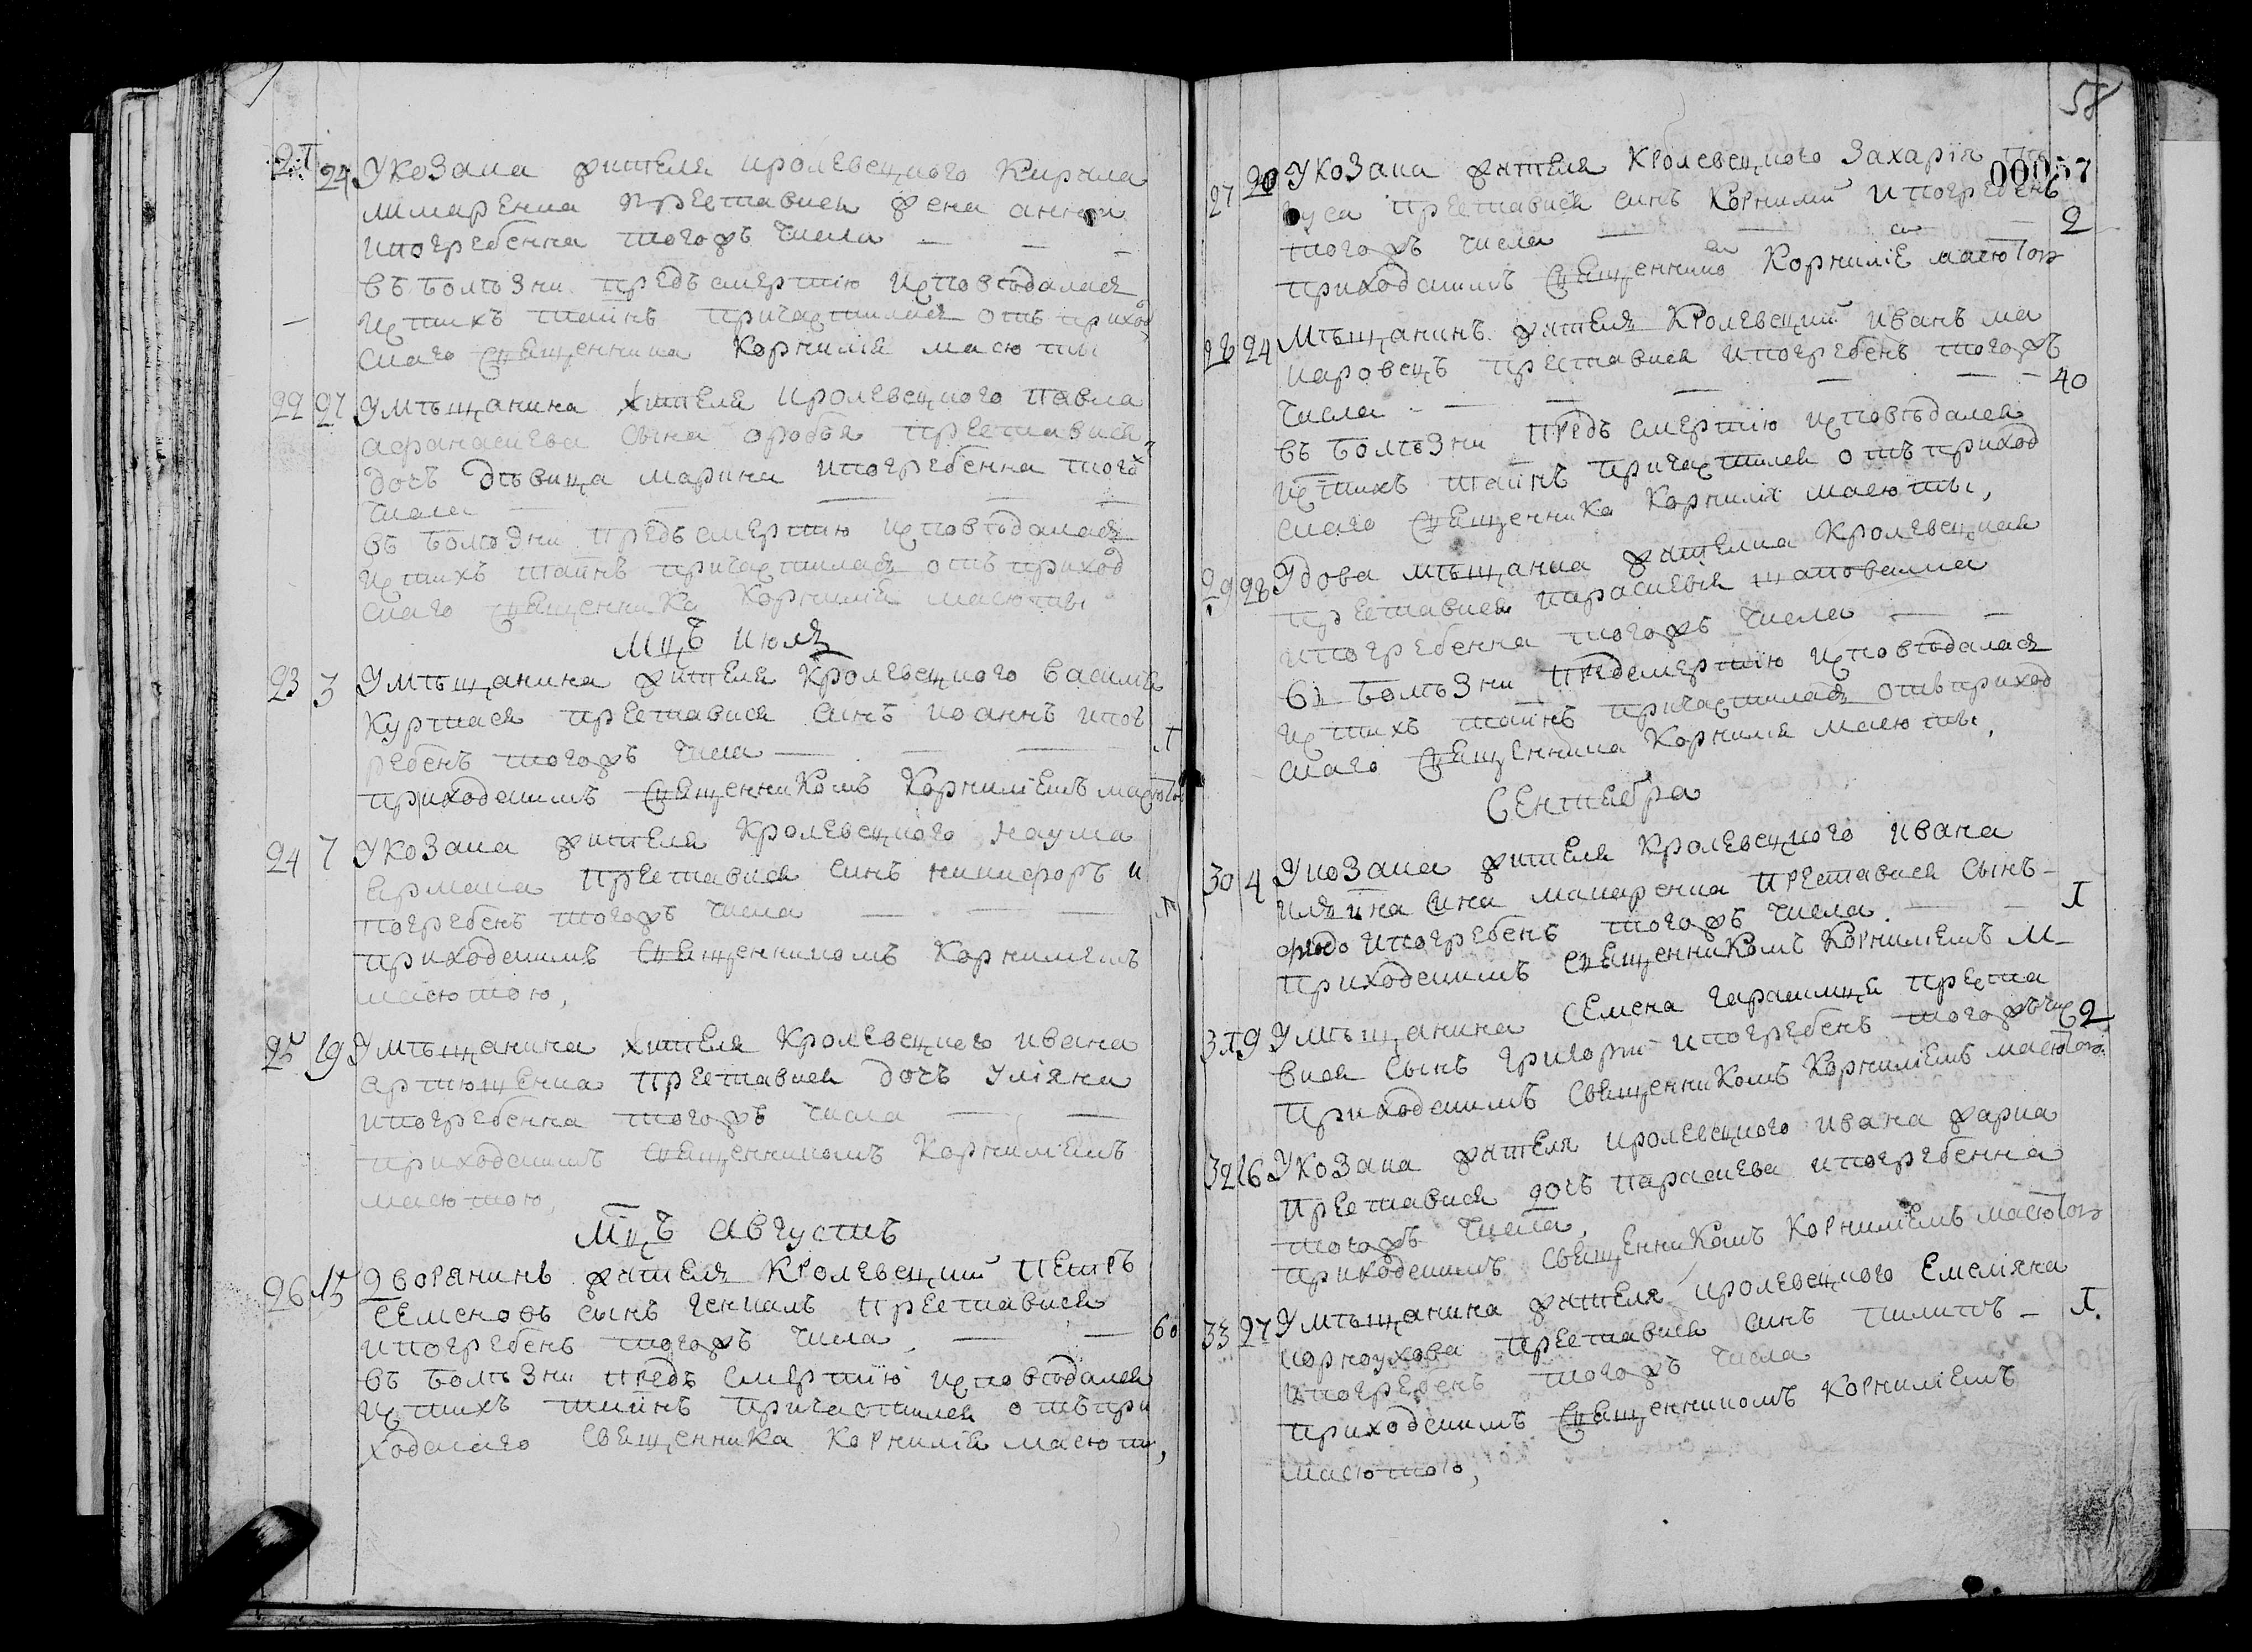 21 24 У козака жителя кролевецкого Кирила
лимаренка преставися жена анна
и погребенна тогожъ числа — — —
въ болѣзни предъ смертію исповѣдалася
и с тихъ таинъ причастилася отъ приход
скаго священника Корнилія масюты
22 27 У мѣщанина жителя кролевецкого павла
афанасиева сына оробья преставися
дочъ дѣвица марина и погребенна того
числа — — —
въ болѣзни предъ смертию исповѣдалася
и с тихъ таинъ причастилася отъ приход
скаго священника Корнилія масюты
Мцъ июля
23 3 У мѣщанина жителя Кролевецкого василия
Куртася преставися синъ иоаннъ и пог
ребенъ тогожъ числа — — — 1
приходскимъ священникомъ Корниліемъ масютою
24 7 У козака жителя Кролевецкого наума
ермака преставися синъ никифоръ и
погребенъ тогожъ числа — — — 1
приходскимъ священникомъ Корнилиемъ
масютою,
25 19 У мѣщанина жителя Кролевецкого ивана
артющенка преставися дочъ уліяна
и погребенна тогожъ числа — —
приходскимъ священникомъ Корниліемъ
масютою,
Мцъ августъ
26 15 Дворянинъ жителя Кролевецкий петръ
семеновъ сынъ преставися
и погребенъ тогожъ числа, — — 60
въ болѣзни предъ смертиїю исповѣдался
и с тихъ таинъ причастился отъ при
ходскаго священника Корнилія масюти,
58
00057
27 20 У козака жителя Кролевецкого Захарія
преставися синъ Корнилий и погребенъ
тогожъ числа — — — 2
приходскимъ священнико Корнилїе масютою
28 24 Мѣщанинъ жителя Кролевецкий иванъ ма
каровецъ преставися и погребенъ тогожъ
числа — — — — — 40
въ болѣзни предъ смертію исповѣдался
и с тихъ таинъ причастился отъ приход
скаго священника Корнилія масюты,
29 28 Удова мѣщанка жителка Кролевецкая
преставися параскевія шаповалка
и погребенна тогожъ числа — —
въ болѣзни предсмертію исповѣдалася
и с тихъ таинъ причастилася отъ приход
скаго священника Корнилия масюты,
Сентиабра
30 4 У козака жителя Кролевецкого ивана
сина макаренка преставися сынъ —
и погребенъ тогожъ числа. — — 1
приходскимъ священникомъ Корнилиемъ М—
31 9 У мѣщанина Семена преста
вися сынъ григорий и погребенъ тогожъ чис 2
приходскимъ священникомъ Корниліемъ масютою
32 16 У козака жителя кролевецкого ивана жарка
преставися дочъ параскева и погребенна
тогожъ числа,
приходскимъ священникомъ Корнилиемъ масютою
33 27 У мѣщанина жителя кролевецкого Емеляна
корноухова преставися синъ пилипъ — 1
и погребенъ тогожъ числа
приходскимъ священникомъ Корниліемъ
масютою,